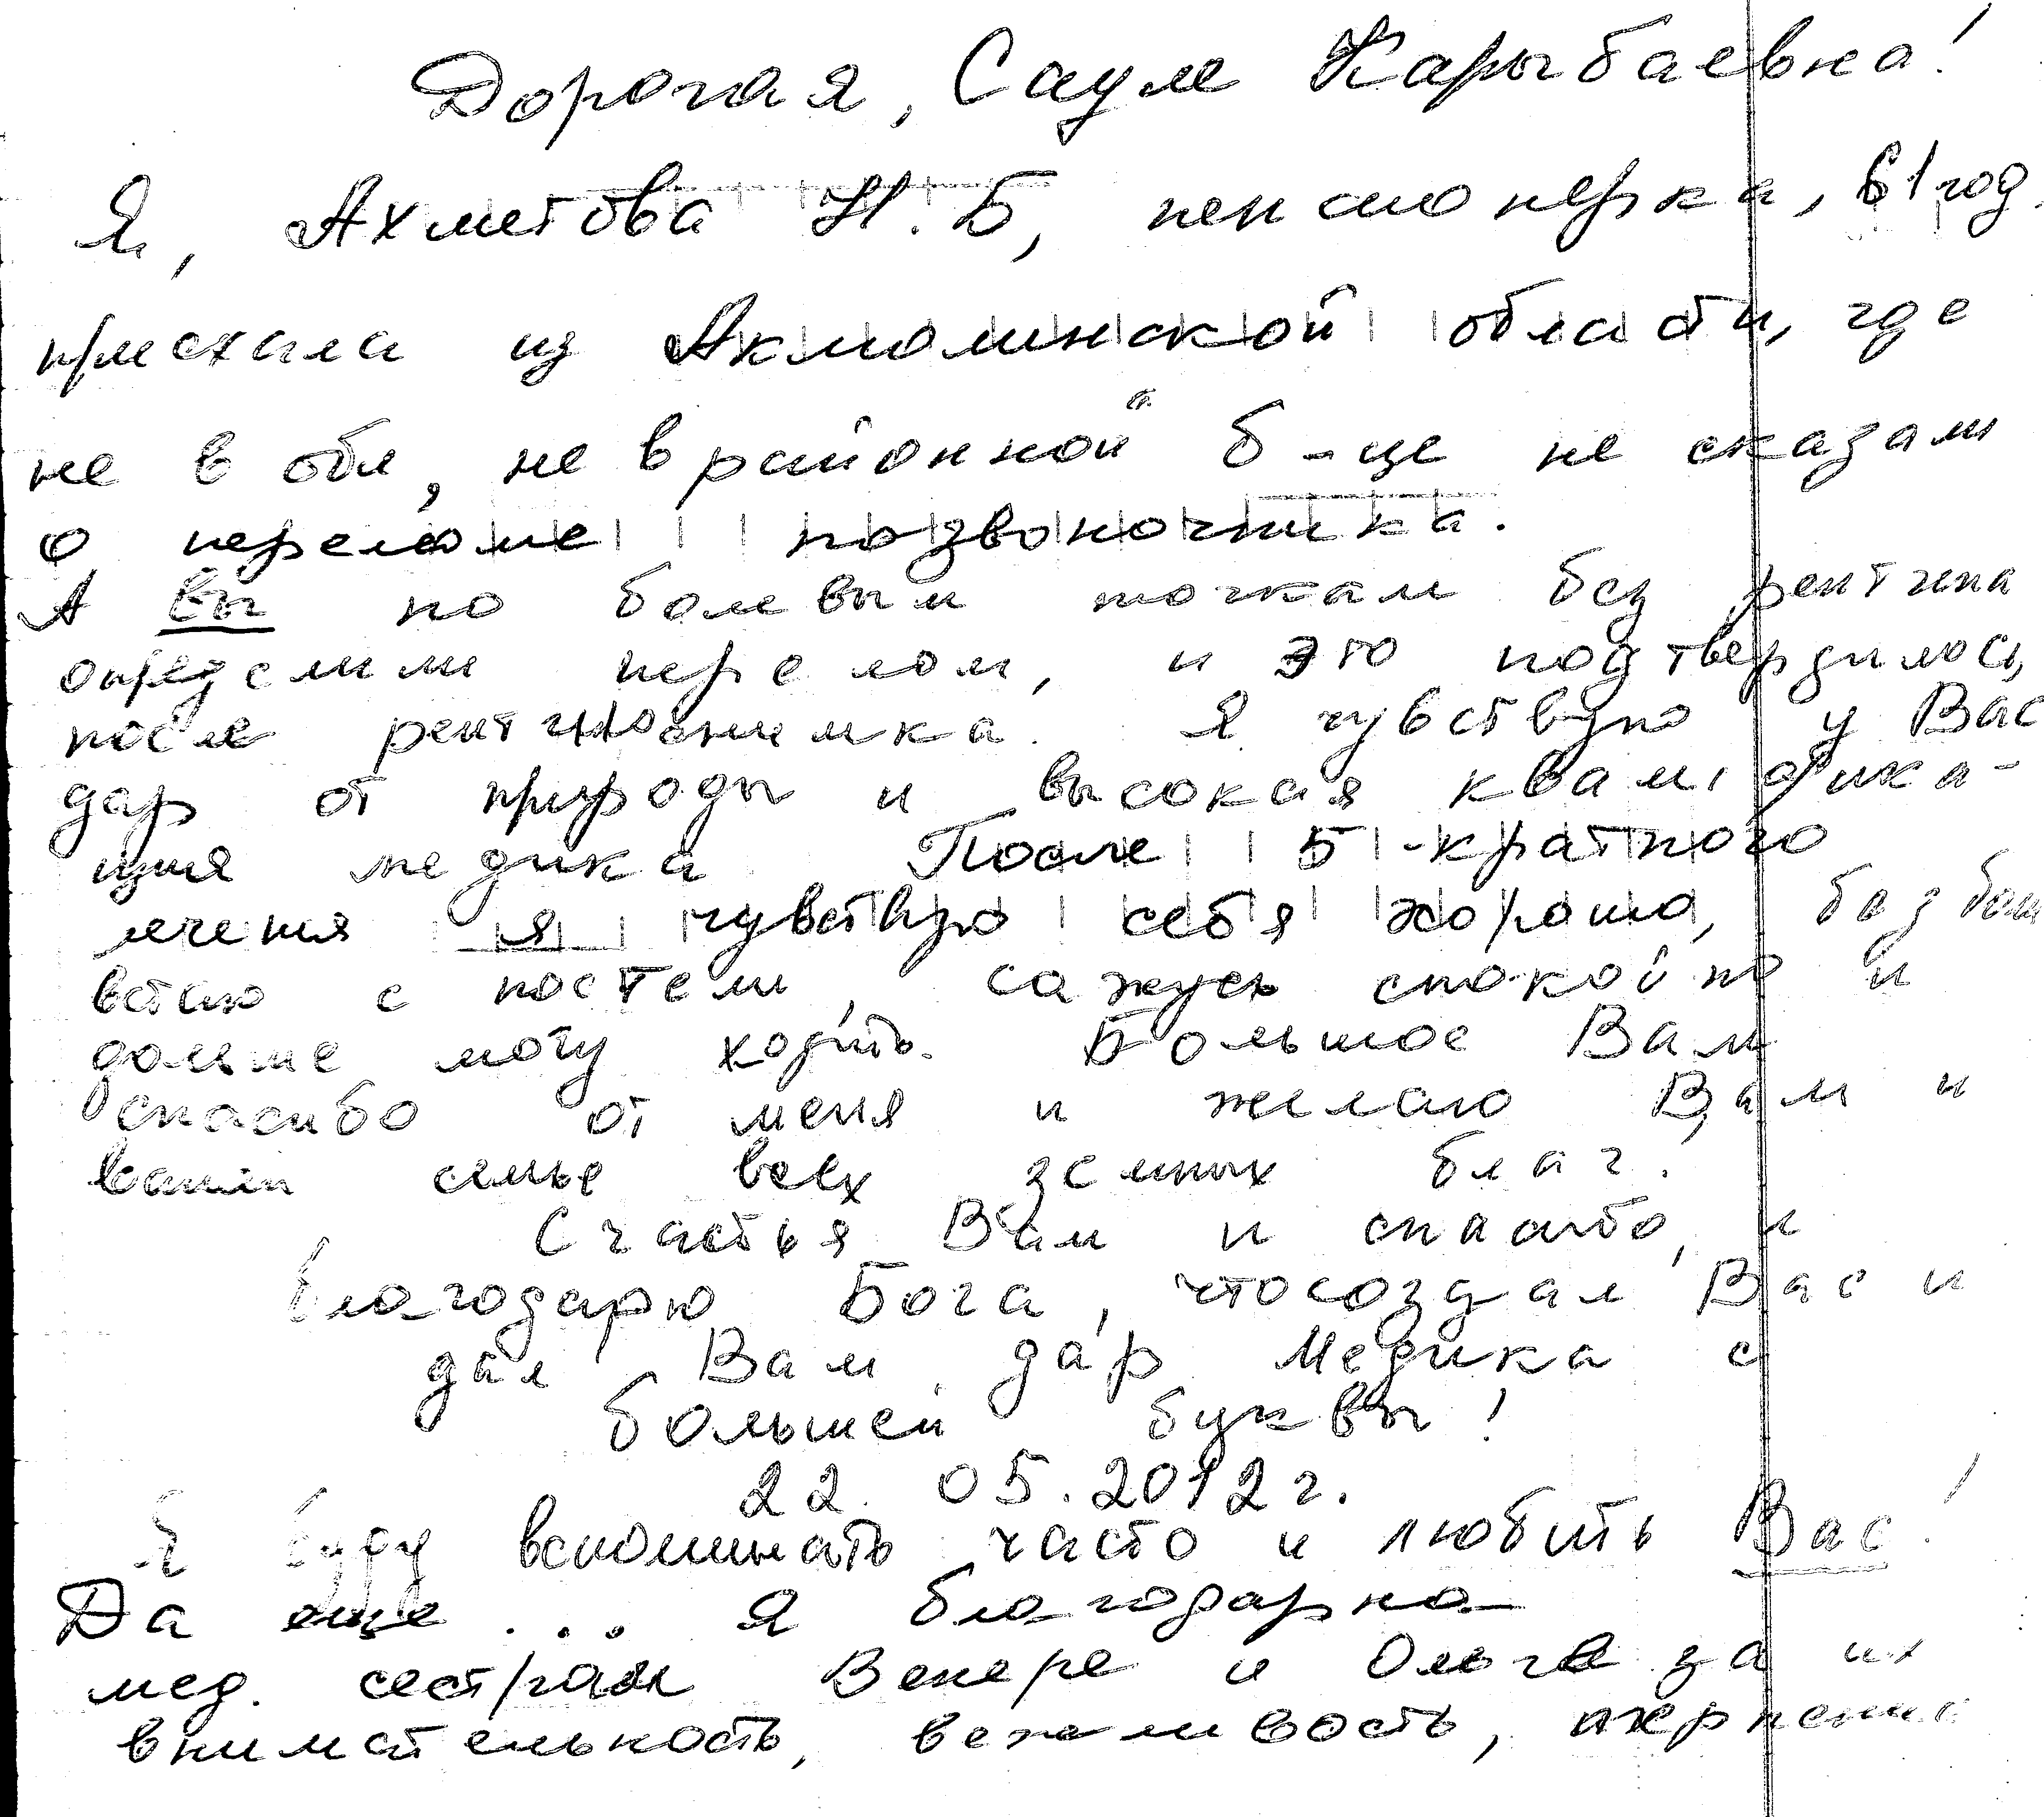 Дорогая, Сауле Карыбаевна!
Я, Ахметова Н.Б, пенсионерка, 61 год.
приехала из Акмолинской области, где
не в обл, не в районной б-це не сказали
о переломе позвоночника.
А Вы по болевым точкам без рентгена
определили перелом, и это подтвердилось,
после рентгеноснимка. Я чувствую у Вас
дар от природы и высокая квалифика-
ция медика После 5-кратного
лечения я чувствую себя хорошо, без боли
встаю с постели, сажусь спокойно и
дольше могу ходить. Большое Вам
спасибо от меня и желаю Вам и
вашей семье всех земных благ.
Счастья Вам и спасибо, и
благодарю Бога, что создал Вас и
дал Вам дар Медика с
большей буквы!
22.05.2012 г.
Я буду вспоминать часто и любить Вас!
Да еще ... я благодарна
мед. сестрам Венере и Ольге за их
внимательность, вежливость, терпение